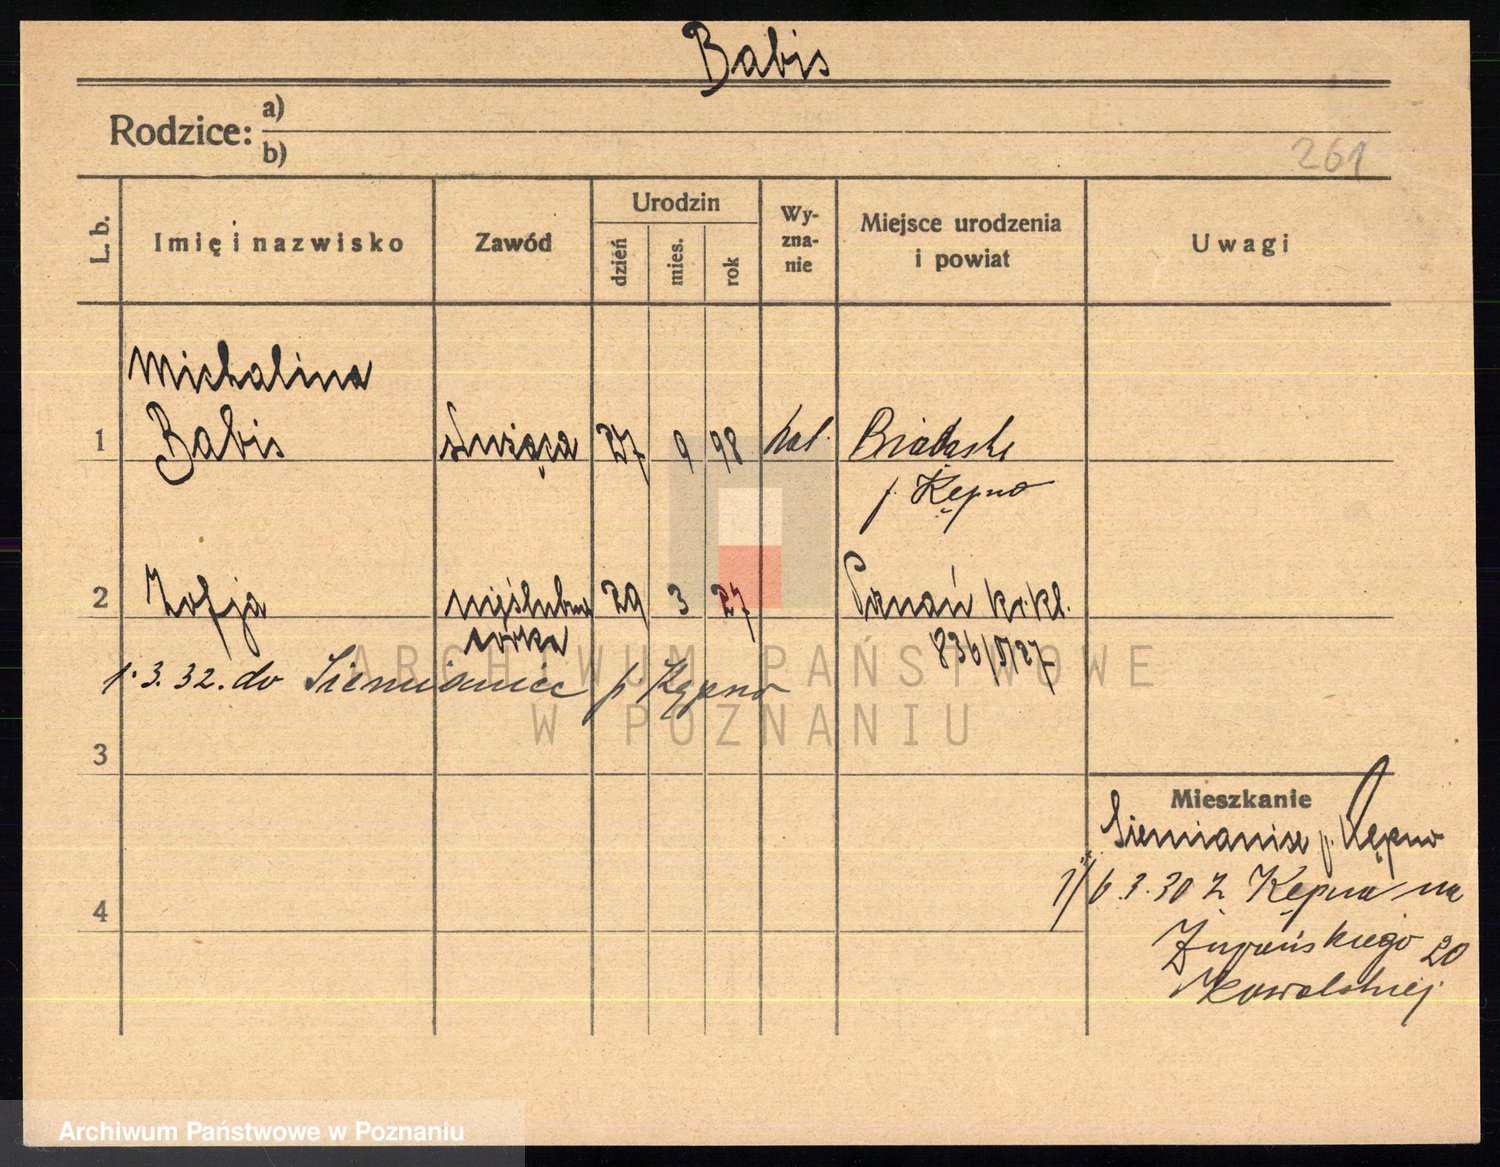 Babis
Rodzice: a)
b)
261
L. b.
Imię i nazwisko
Zawód
Urodzin
dzień
mies.
rok
Wy-
zna-
nie
Miejsce urodzenia
i powiat
Uwagi
Michalina
1 Babis służąca 27 9 98 kat.
p. Kępno
2 Zofja nieślubna 29 3 27 Poznań kr. kl.
córka 836/5/27
1.3.32. do Siemianice p. Kępno
ARCHIWUM PAŃSTWOWE
W POZNANIU
3
Mieszkanie
Siemianice p. Kępno
6.3.30 z Kępna na
4
Żupańskiego 20
Kowalskiej
Archiwum Państwowe w Poznaniu